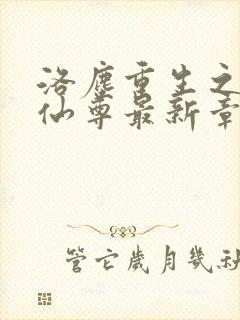 洛尘重生之
仙尊最新章
管它岁月几